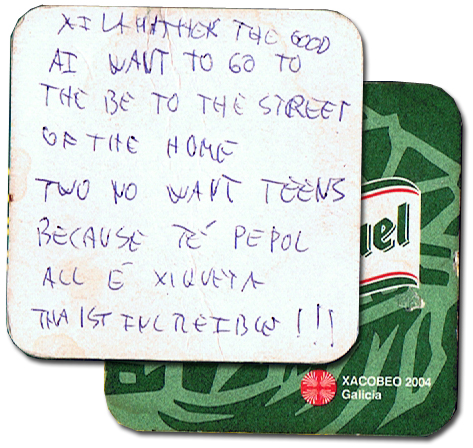 XI LA MATHER THE GOOD
AI WANT TO GO TO
THE BE TO THE STREET
OF THE HOME
TWO NO WANT TEENS
BECAUSE TE´ PEPOL
ALL E´ XIQUETA
THA IST INCREIBLE !!!
uel
XACOBEO 2004
Galicia